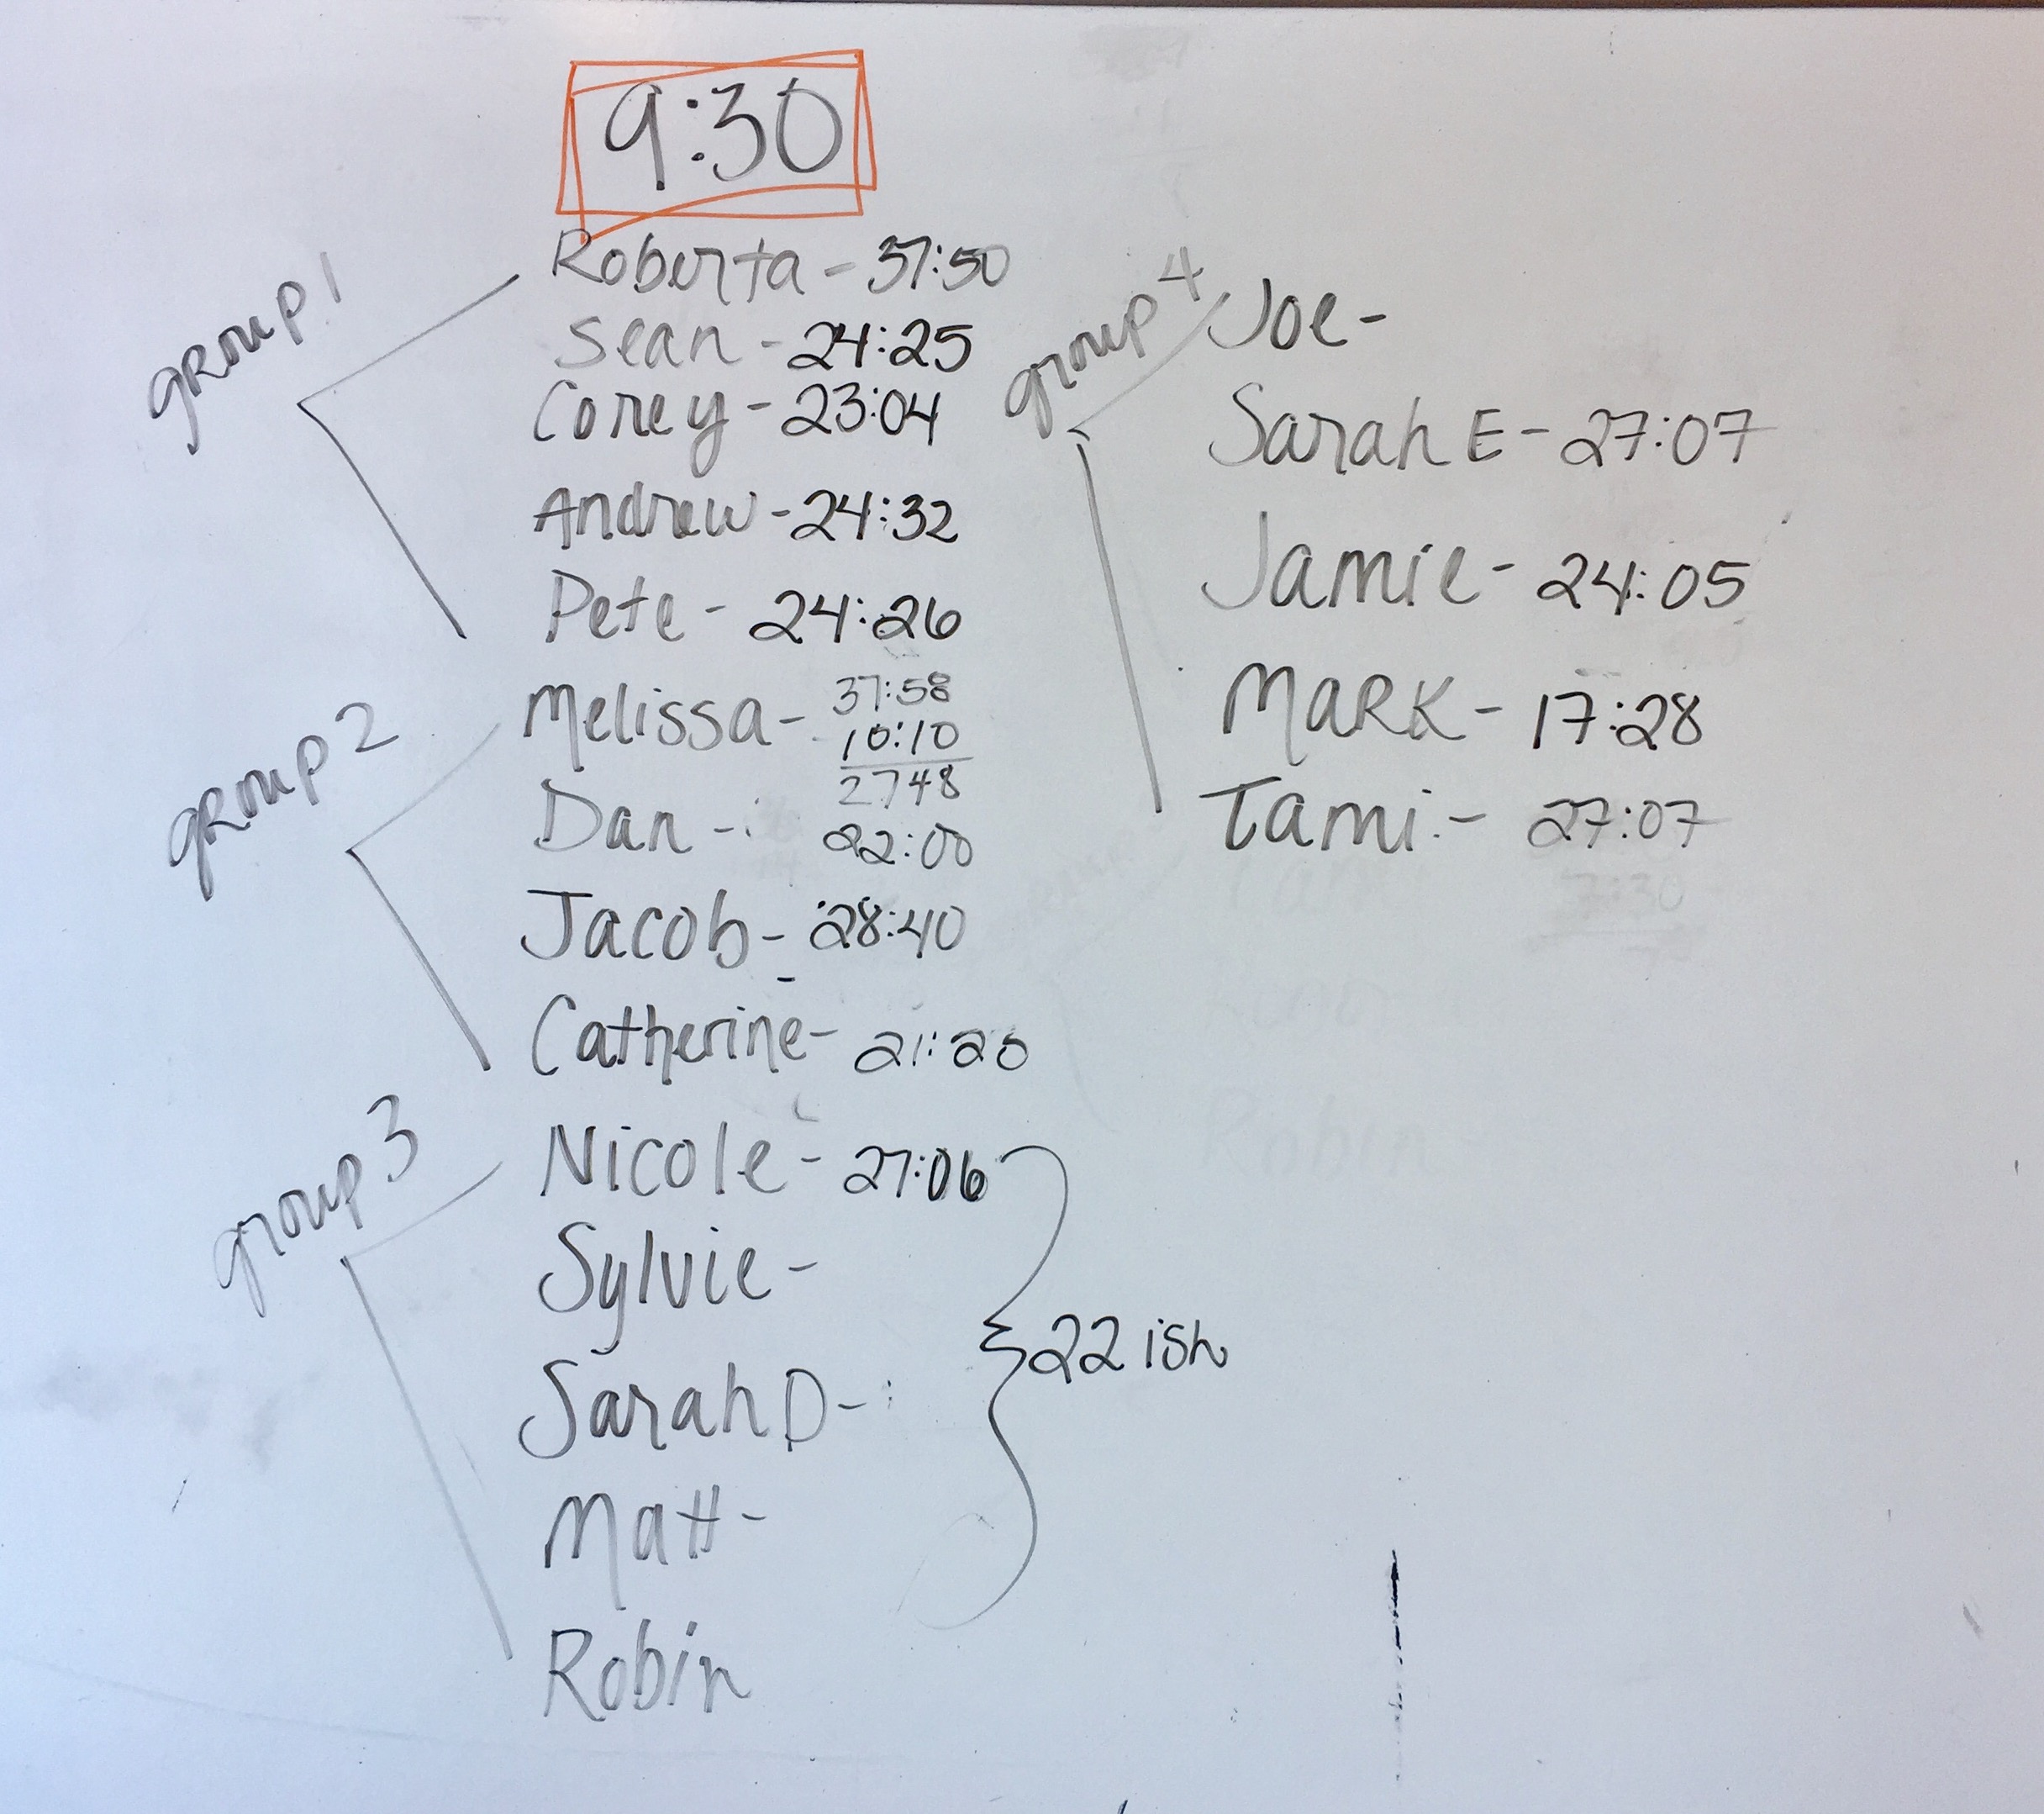 9:30
group 1
Roberta - 37:50
Sean - 24:25
Corey - 23:04
Andrew - 24:32
Pete - 24:26
group 2
Melissa - 37:58
10:10
2748
Dan - 22:00
Jacob - 28:40
Catherine - 21:20
group 3
Nicole - 27:06
Sylvie -
Sarah D -
Matt -
Robin
22 ish
group 4
Joe -
Sarah E - 27:07
Jamie - 24:05
MARK - 17:28
Tami - 27:07
7:30
Robin